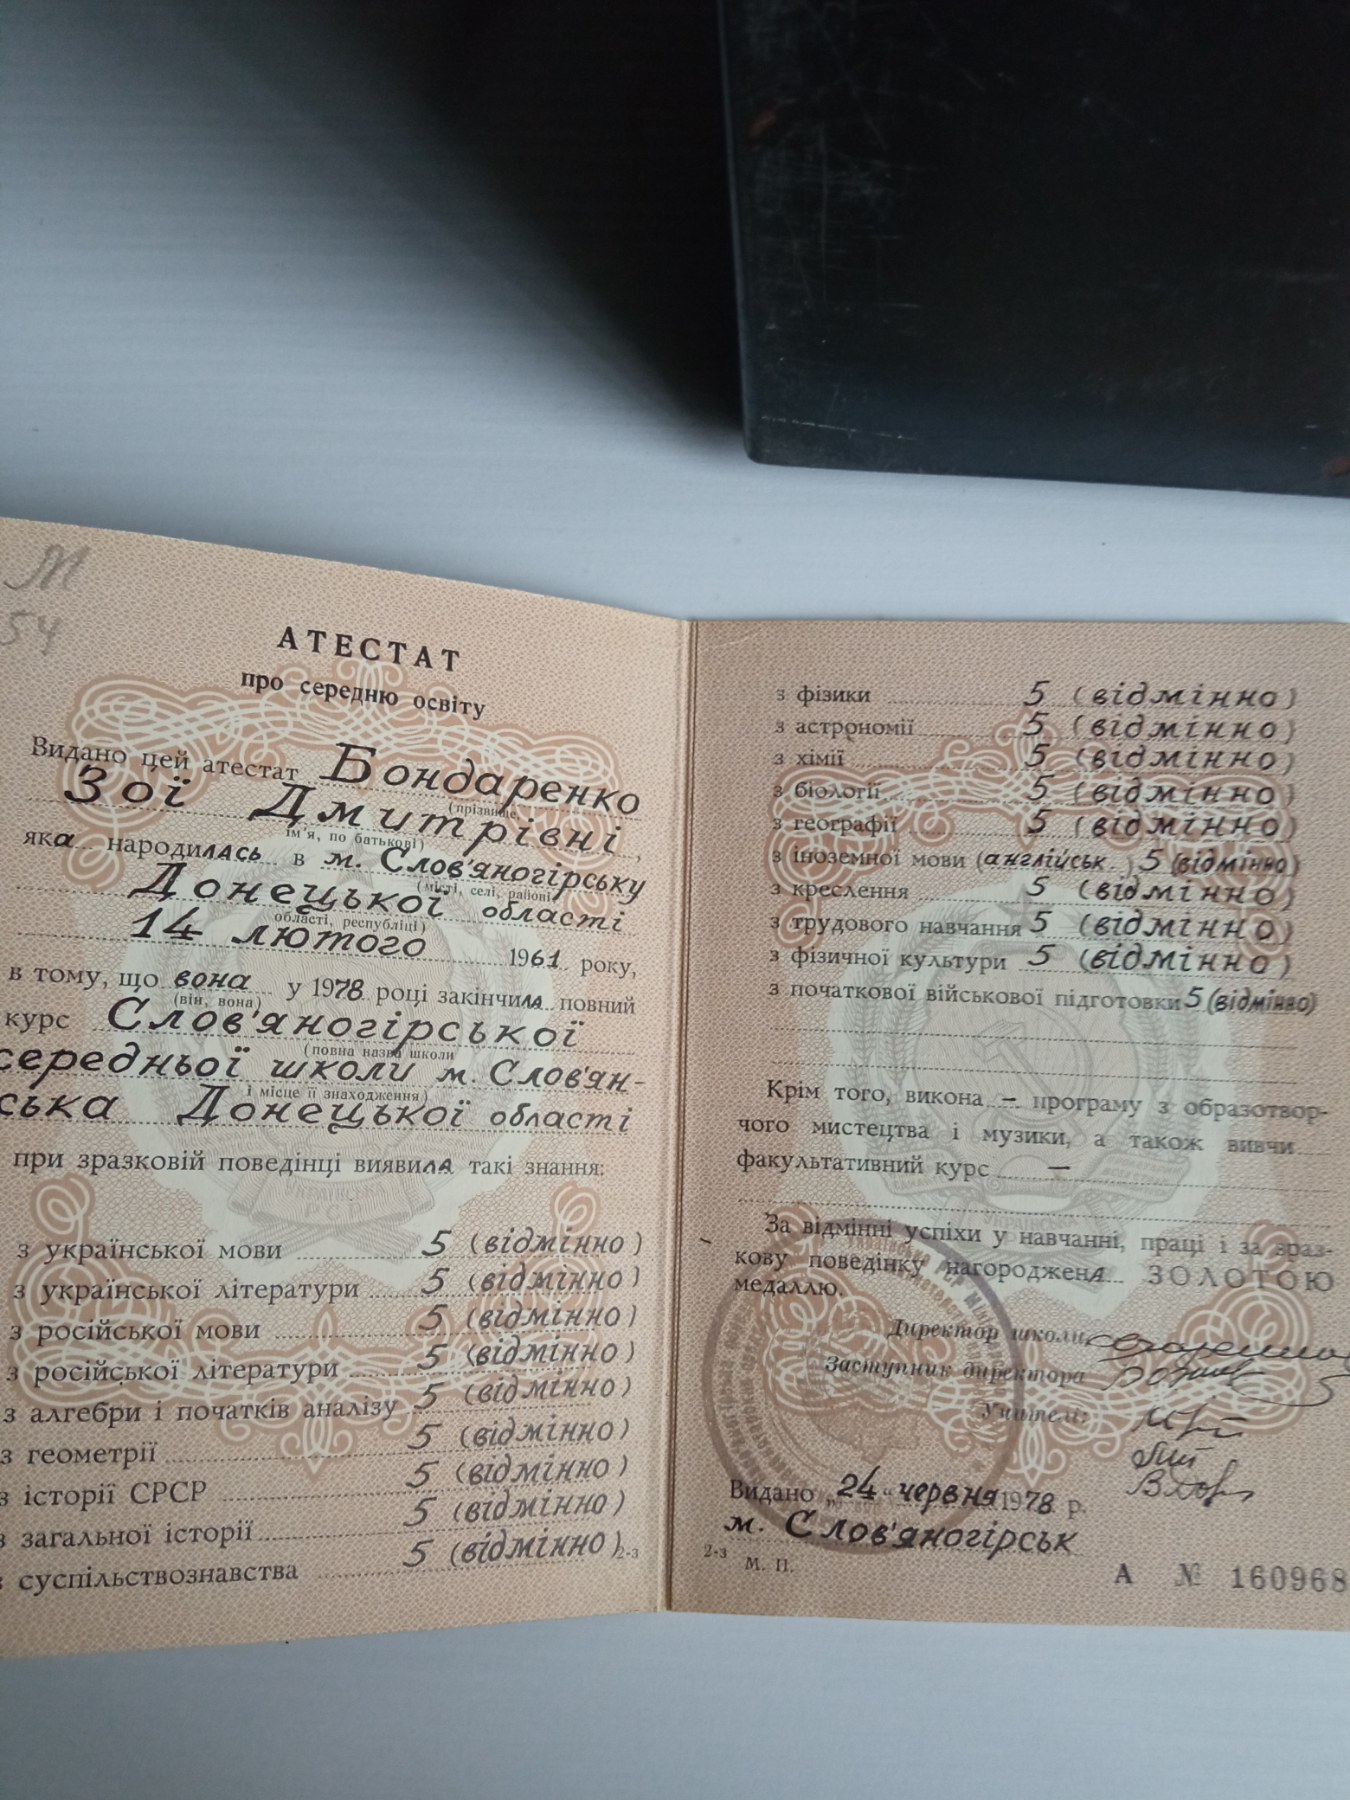 М
54
АТЕСТАТ
про середню освіту
Видано цей атестат Бондаренко
(прізвище,
Зої Дмитрівні,
ім'я, по батькові)
яка народилась в м. Слов'яногірську
(місті, селі, районі
Донецької області
області, республіці)
14 лютого 1961 року,
в тому, що вона у 1978 році закінчила повний
(він, вона)
курс Слов'яногірської
(повна назва школи
середньої школи м. Слов'ян-
і місце її знаходження)
ська Донецької області
при зразковій поведінці виявила такі знання:
УКРАЇНСЬКА
РСР
з української мови 5 (відмінно)
з української літератури 5 (відмінно)
з російської мови 5 (відмінно)
з російської літератури 5 (відмінно)
з алгебри і початків аналізу 5 (відмінно)
з геометрії 5 (відмінно)
з історії СРСР 5 (відмінно)
з загальної історії 5 (відмінно)
з суспільствознавства 5 (відмінно)
2-з
з фізики 5 (відмінно)
з астрономії 5 (відмінно)
з хімії 5 (відмінно)
з біології 5 (відмінно)
з географії 5 (відмінно)
з іноземної мови (англійськ.) 5 (відмінно)
з креслення 5 (відмінно)
з трудового навчання 5 (відмінно)
з фізичної культури 5 (відмінно)
з початкової військової підготовки 5 (відмінно)
Крім того, викона — програму з образотвор-
чого мистецтва і музики, а також вивчи
факультативний курс —
За відмінні успіхи у навчанні, праці і за зраз-
кову поведінку нагороджена ЗОЛОТОЮ
медаллю.
Директор школи
Заступник директора
Учителі:
Видано „24" червня 1978 р.
м. Слов'яногірськ
2-з
М. П.
А № 160968